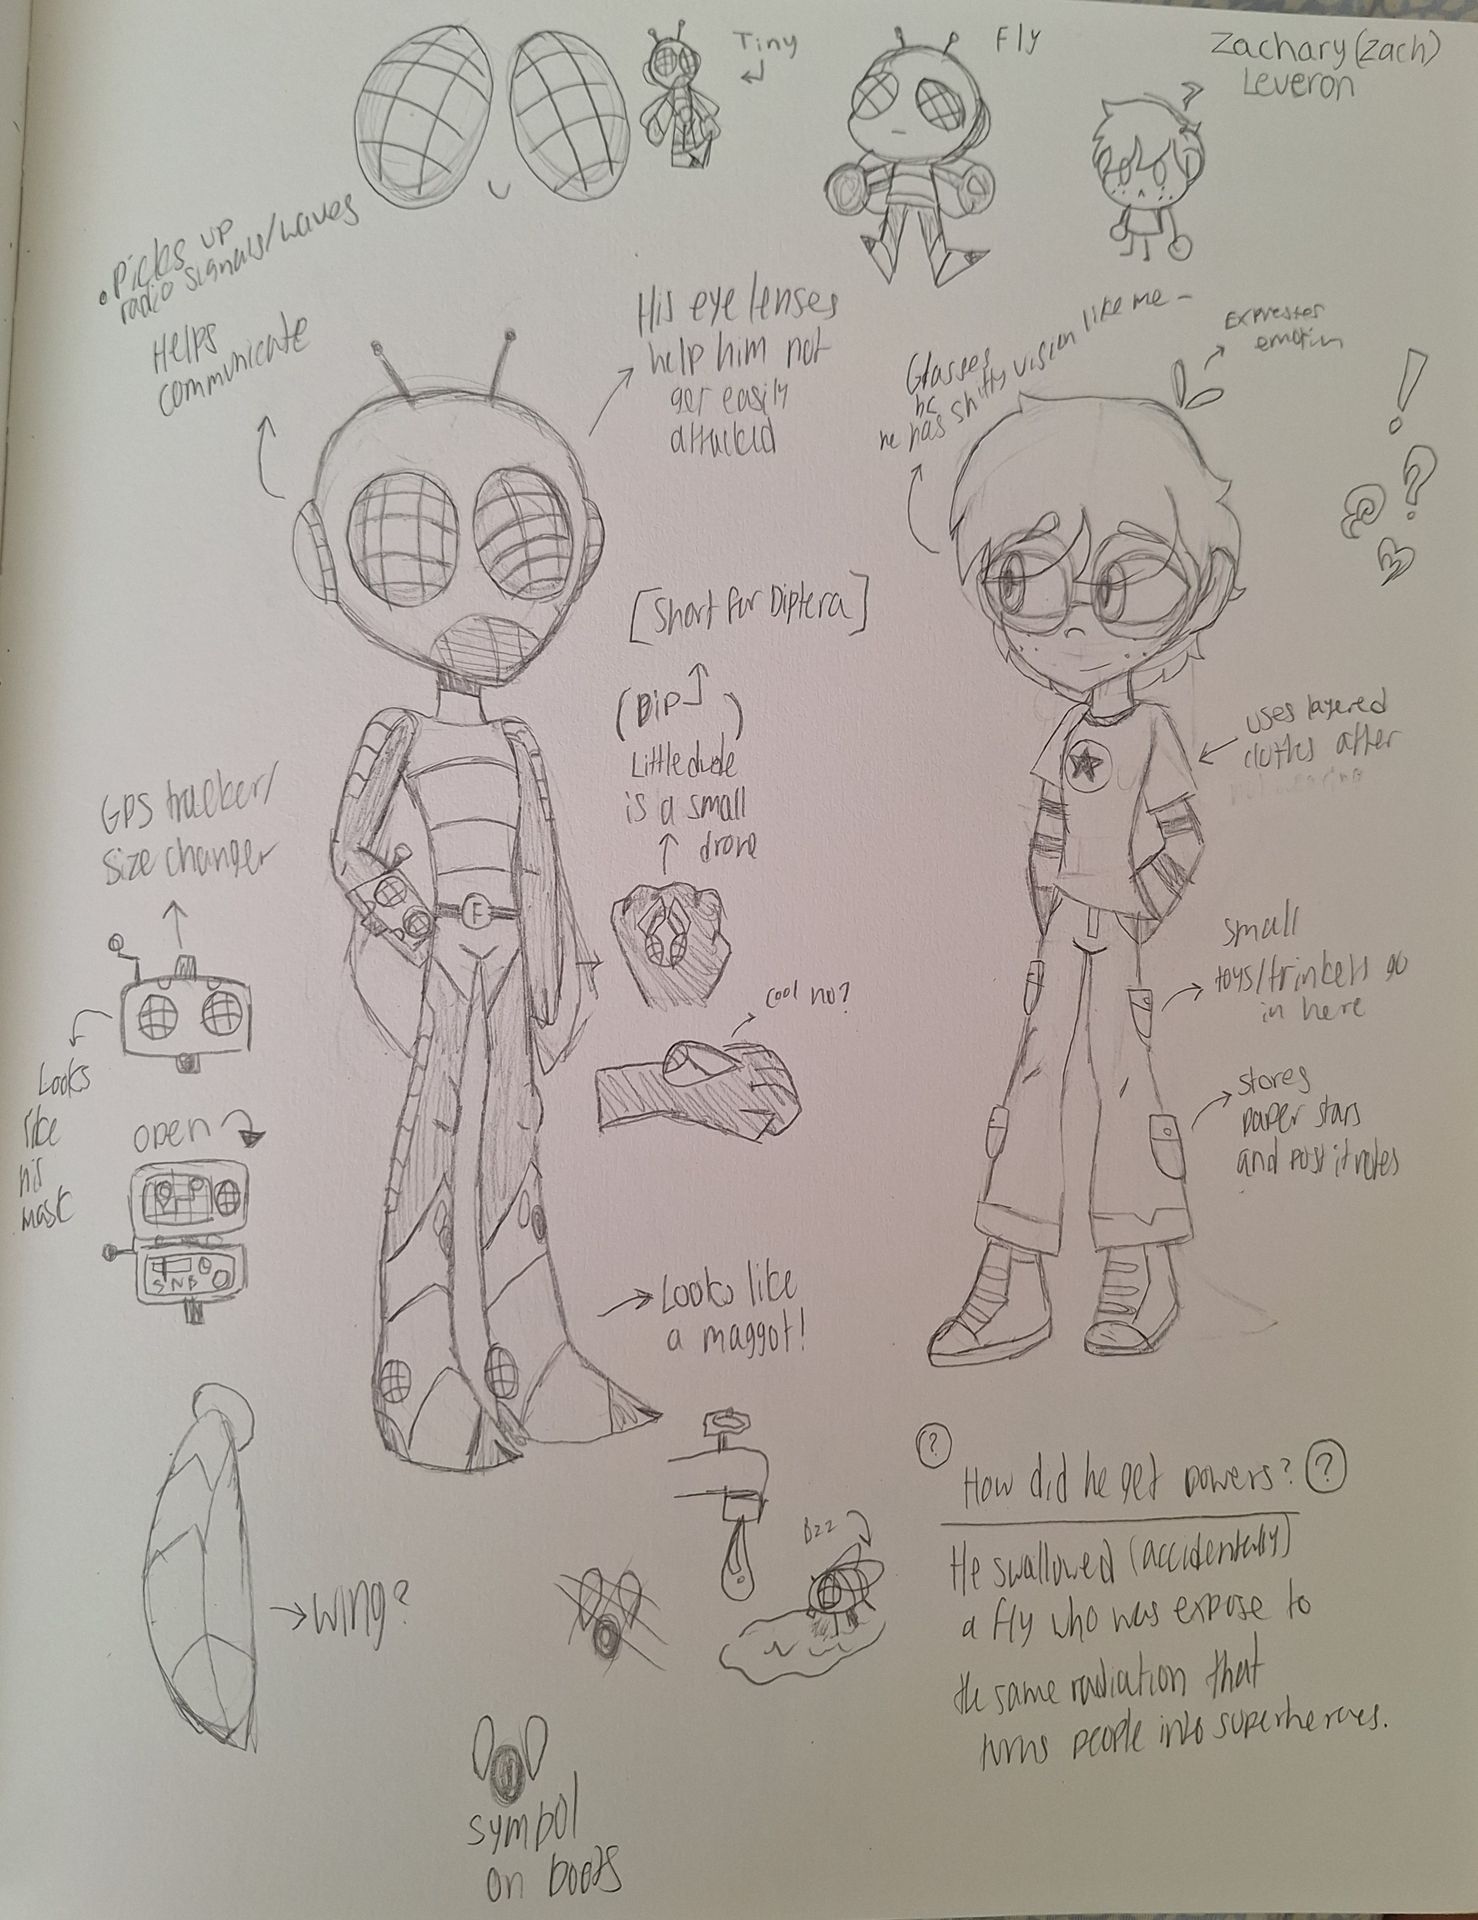 Tiny
Fly
Zachary (Zach)
Leveron
• Picks up
radio signals/waves
Helps
communicate
His eye lenses
help him not
get easily
attacked
Glasses
bc
he has shitty vision like me -
Expresses
emotion
! ?
[Short for Diptera]
(Dip)
Little dude
is a small
drone
uses layered
clothes after
GPS tracker/
size changer
small
toys/trinkets go
in here
cool no?
Looks
like
his
mask
F
stores
paper stars
and post it notes
open
SNB
Looks like
a maggot!
Bzz
? How did he get powers? ?
He swallowed (accidentally)
a fly who was expose to
the same radiation that
turns people into superheroes.
wing?
symbol
on boots